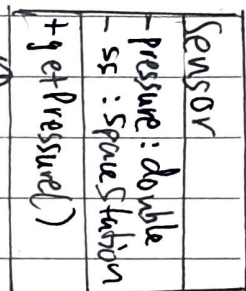 Sensor
- pressure : double
- ss : SpaceStation
+ getPressure()